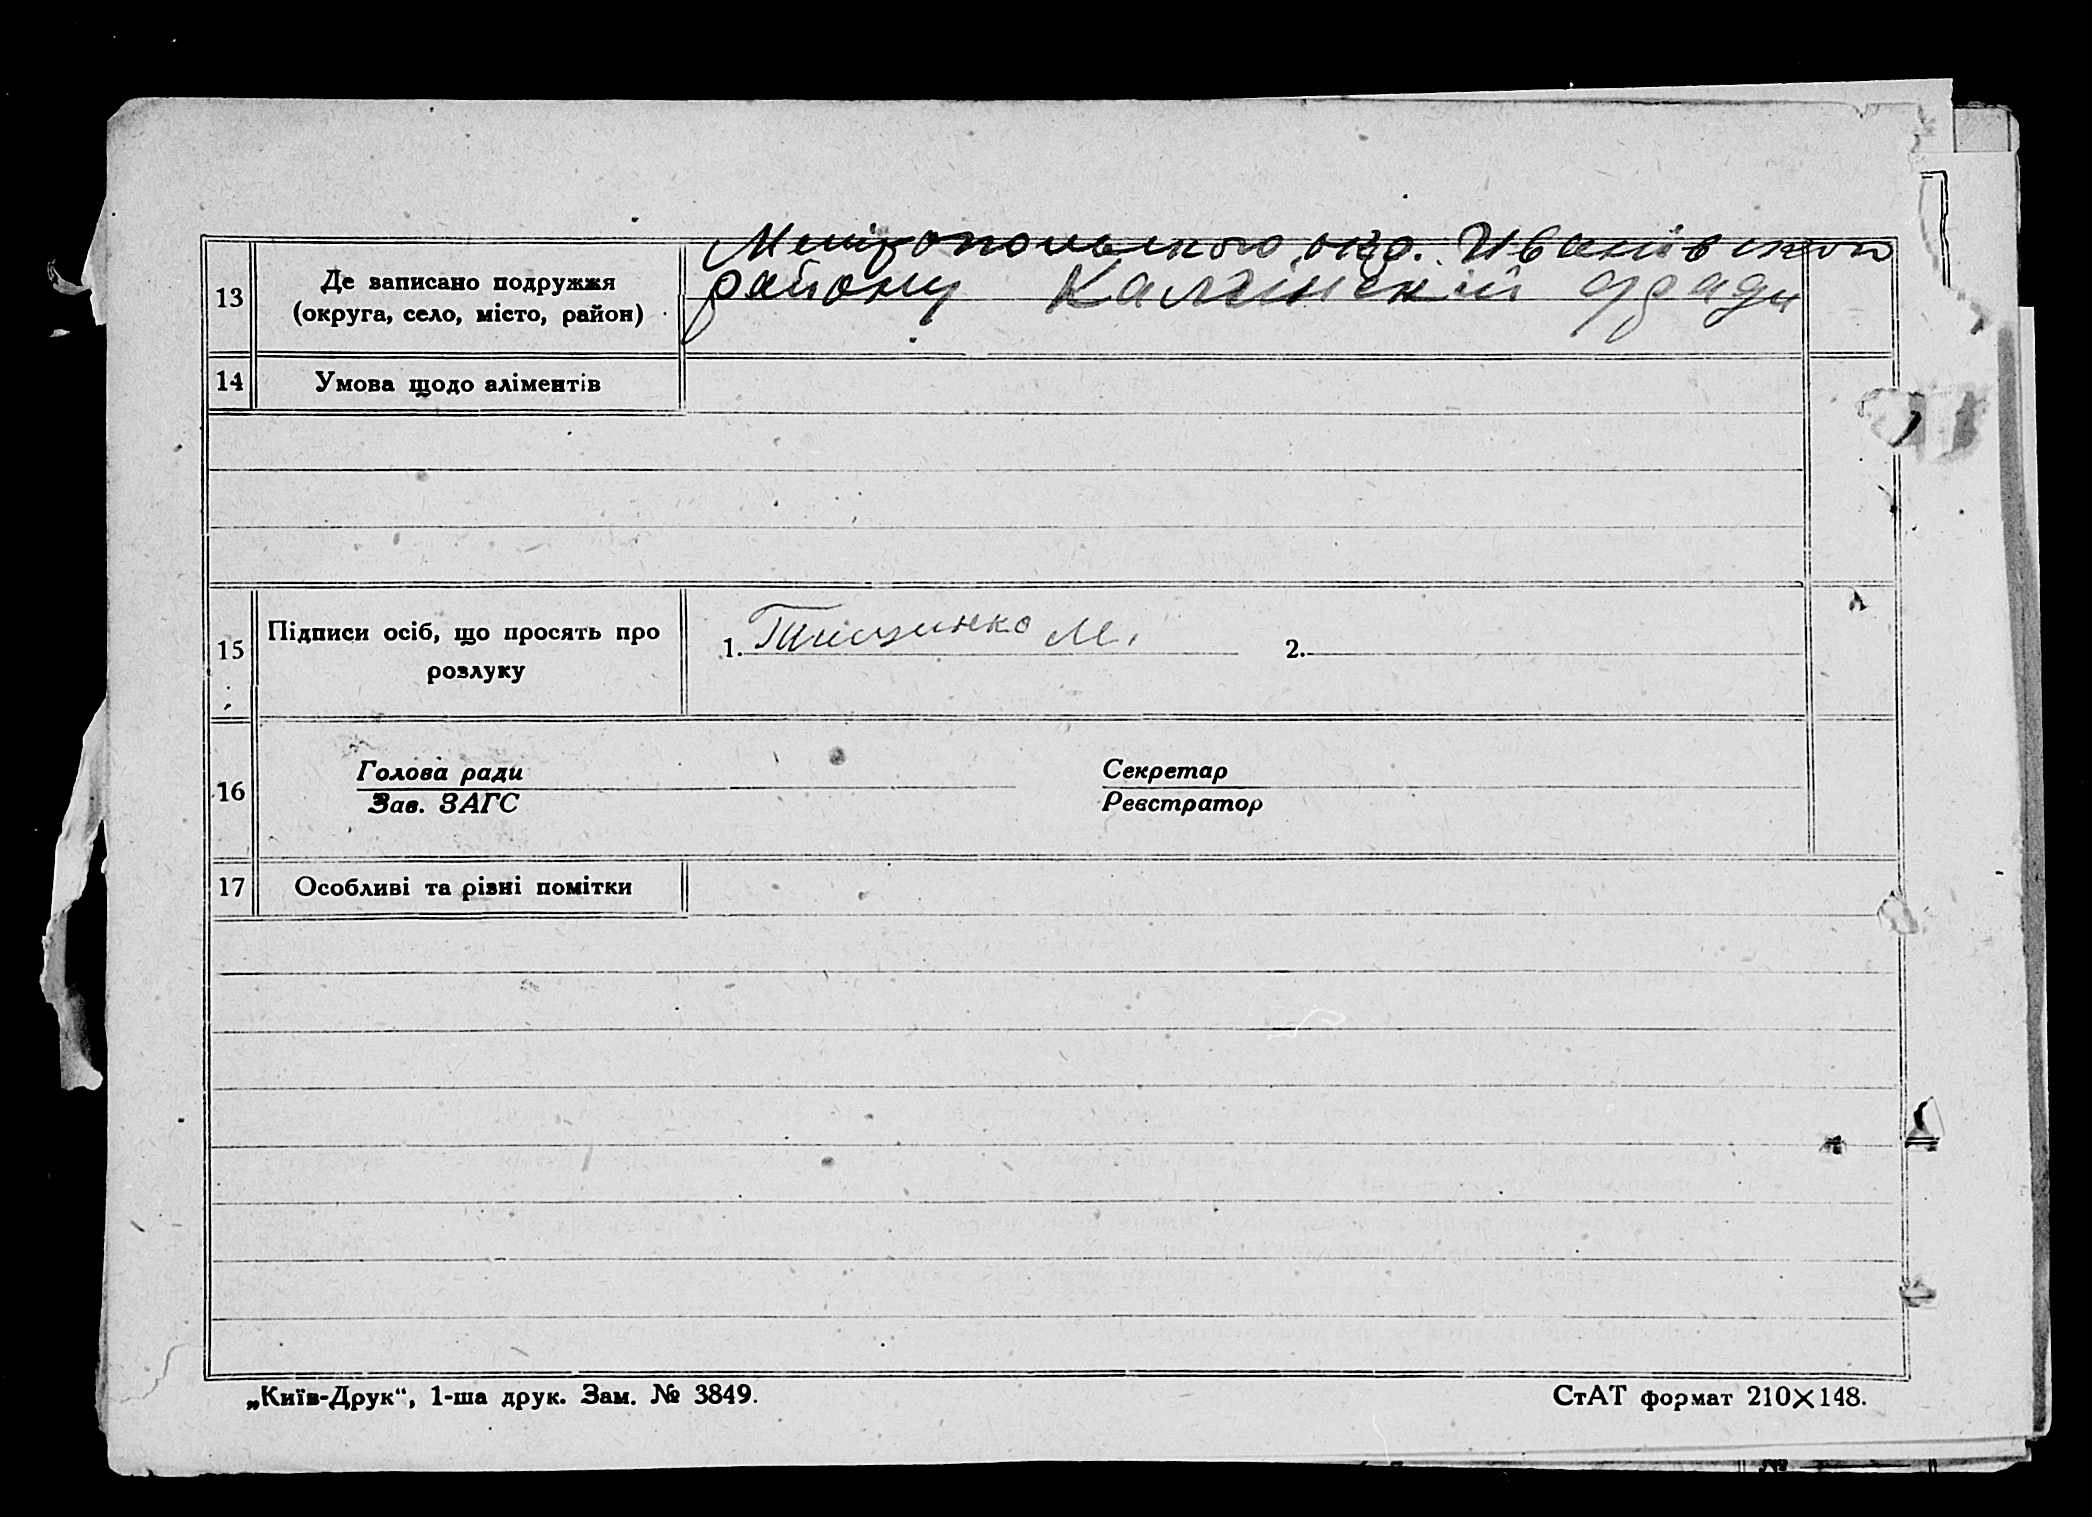 Мелітопольського окр. Иванівского
району Калгінскій с/ради
13 Де записано подружжя
(округа, село, місто, район)
14 Умова щодо аліментів
15 Підписи осіб, що просять про
розлуку
1. Тищинко М. 2.
16 Голова ради Секретар
Зав. ЗАГС Реєстратор
17 Особливі та різні помітки
„Київ-Друк“, 1-ша друк. Зам. № 3849. СтАТ формат 210×148.
№